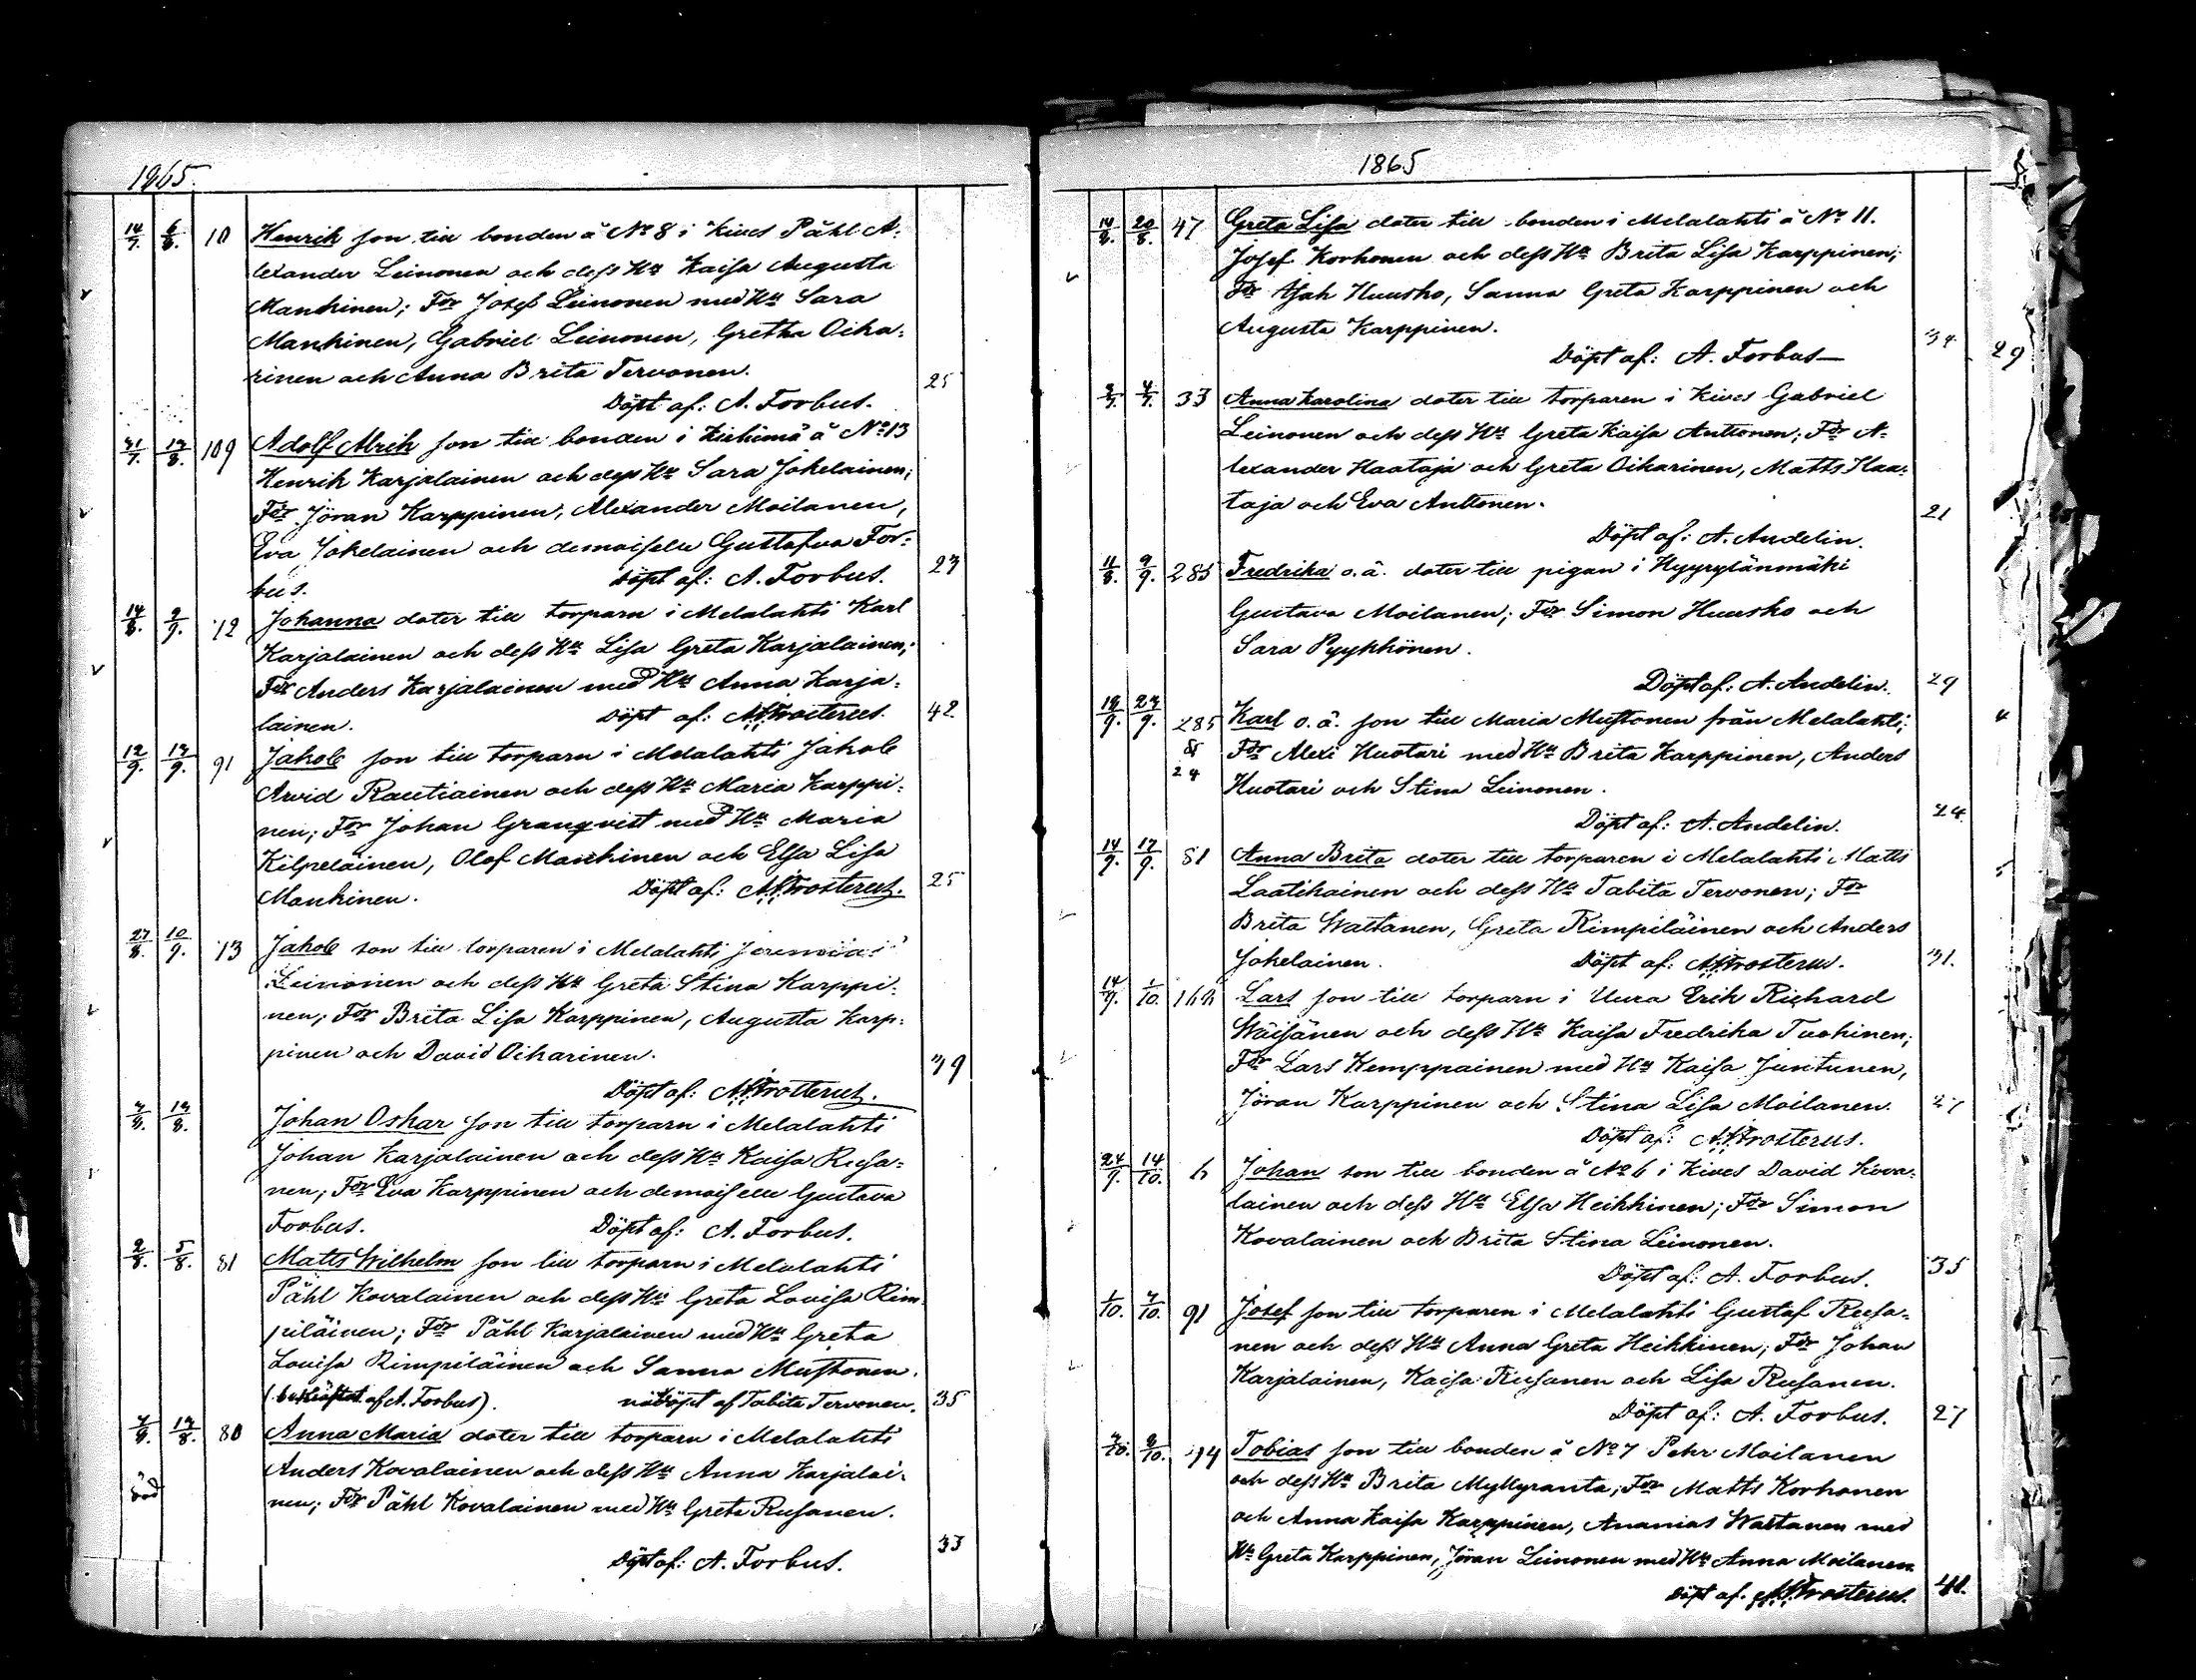 1865.
14/7. 6/8. 10 Henrik son till bonden å No 8 i Kives Påhl A-
lexander Leinonen och dess Hu Kaisa Augusta
Mankinen; For Josef Leinonen med Hu Sara
Mankinen, Gabriel Leinonen, Gretha Oika-
rinen och Anna Brita Tervonen. 25
Döpt af: A. Forbus.
31/7. 13/8. 109 Adolf Alrik son till bonden i Kiehimä å No 13
Henrik Karjalainen och dess Hu Sara Jokelainen;
For Jöran Karppinen, Alexander Moilanen,
Eva Jokelainen och demoiselle Gustafva For-
bus. Döpt af: A. Forbus. 23
14/8. 2/9. 12 Johanna dotер till torparn i Melalahti Karl
Karjalainen och dess Hu Lisa Greta Karjalainen;
For Anders Karjalainen med Hu Anna Karja-
lainen. Döpt af: Frosterus. 42
12/9. 17/9. 91 Jakob son till torparn i Melalahti Jakob
Arvid Rautiainen och dess Hu Maria Karppi-
nen; For Johan Granqvist med Hu Maria
Kilpeläinen, Olof Mankinen och Elsa Lisa
Mankinen. Döpt af: Frosterus. 25
27/8. 10/9. 13 Jakob son till torparen i Melalahti Jeremias
Leinonen och dess Hu Greta Stina Karppi-
nen; For Brita Lisa Karppinen, Augusta Karp-
pinen och David Oikarinen. 39
Döpt af: Frosterus.
13/8. Johan Oskar son till torparn i Melalahti
Johan Karjalainen och dess Hu Kaisa Rusa-
nen; For Eva Karppinen och demoiselle Gustava
Forbus. Döpt af: A. Forbus.
2/8. 5/8. 81 Matts Wilhelm son till torparn i Melalahti
Påhl Kovalainen och dess Hu Greta Lovisa Rim-
piläinen; For Påhl Karjalainen med Hu Greta
Louisa Rimpiläinen och Sanna Mustonen.
(bekräftat af A. Forbus). nöddöpt af Tabita Tervonen. 35
13/8. 80 Anna Maria doter till torparn i Melalahti
Anders Kovalainen och dess Hu Anna Karjalai-
nen; For Påhl Kovalainen med Hu Greta Rusanen.
33
Döpt af: A. Forbus.
1865
14/8. 20/8. 47 Greta Lisa doter till bonden i Melalahti å No 11.
Josef Korhonen och dess Hu Brita Lisa Karppinen;
For Isak Huusko, Sanna Greta Karppinen och
Augusta Karppinen. 34
Döpt af: A. Forbus 29
2/7. 4/7. 33 Anna Karolina doter till torparen i Kives Gabriel
Leinonen och dess Hu Greta Kaisa Anttonen; For A-
lexander Haataja och Greta Oikarinen, Matts Haa-
taja och Eva Anttonen. 21
Döpt af: A. Andelin.
11/8. 9/9. 285 Fredrika o.ä. doter till pigan i Hyyrylänmäki
Gustava Moilanen; For Simon Huusko och
Sara Pyykkönen.
Döpt af: A. Andelin. 29
19/9. 24/9. 285 Karl o.ä. son till Maria Mustonen från Melalahti;
For Alexi Huotari med Hu Brita Karppinen, Anders
24 Huotari och Stina Leinonen.
Döpt af: A. Andelin. 24
14/9. 17/9. 81 Anna Brita doter till torparen i Melalahti Matts
Laatikainen och dess Hu Tabita Tervonen; For
Brita Wattanen, Greta Rimpiläinen och Anders
Jokelainen. Döpt af: Frosterus. 31.
14/9. 1/10. Lars son till torparn i Uura Erik Richard
Wäisänen och dess Hu Kaisa Fredrika Tuohinen;
For Lars Kemppainen med Hu Kaisa Juntunen,
Jöran Karppinen och Stina Lisa Moilanen. 27
Döpt af: Frosterus.
24/9. 14/10. 6 Johan son till bonden å No 6 i Kives David Kova-
lainen och dess Hu Elsa Heikkinen; For Simon
Kovalainen och Brita Stina Leinonen.
Döpt af: A. Forbus. 35
1/10. 7/10. 91 Josef son till torparen i Melalahti Gustaf Rusa-
nen och dess Hu Anna Greta Heikkinen; For Johan
Karjalainen, Kaisa Rusanen och Lisa Rusanen.
Döpt af: A. Forbus. 27
8/10. Tobias son till bonden å No 7 Pehr Moilanen
och dess Hu Brita Myllyranta; For Matts Korhonen
och Anna Kaisa Karppinen, Ananias Wattanen med
Hu Greta Karppinen, Jöran Leinonen med Hu Anna Moilanen
Döpt af. Frosterus. 41.